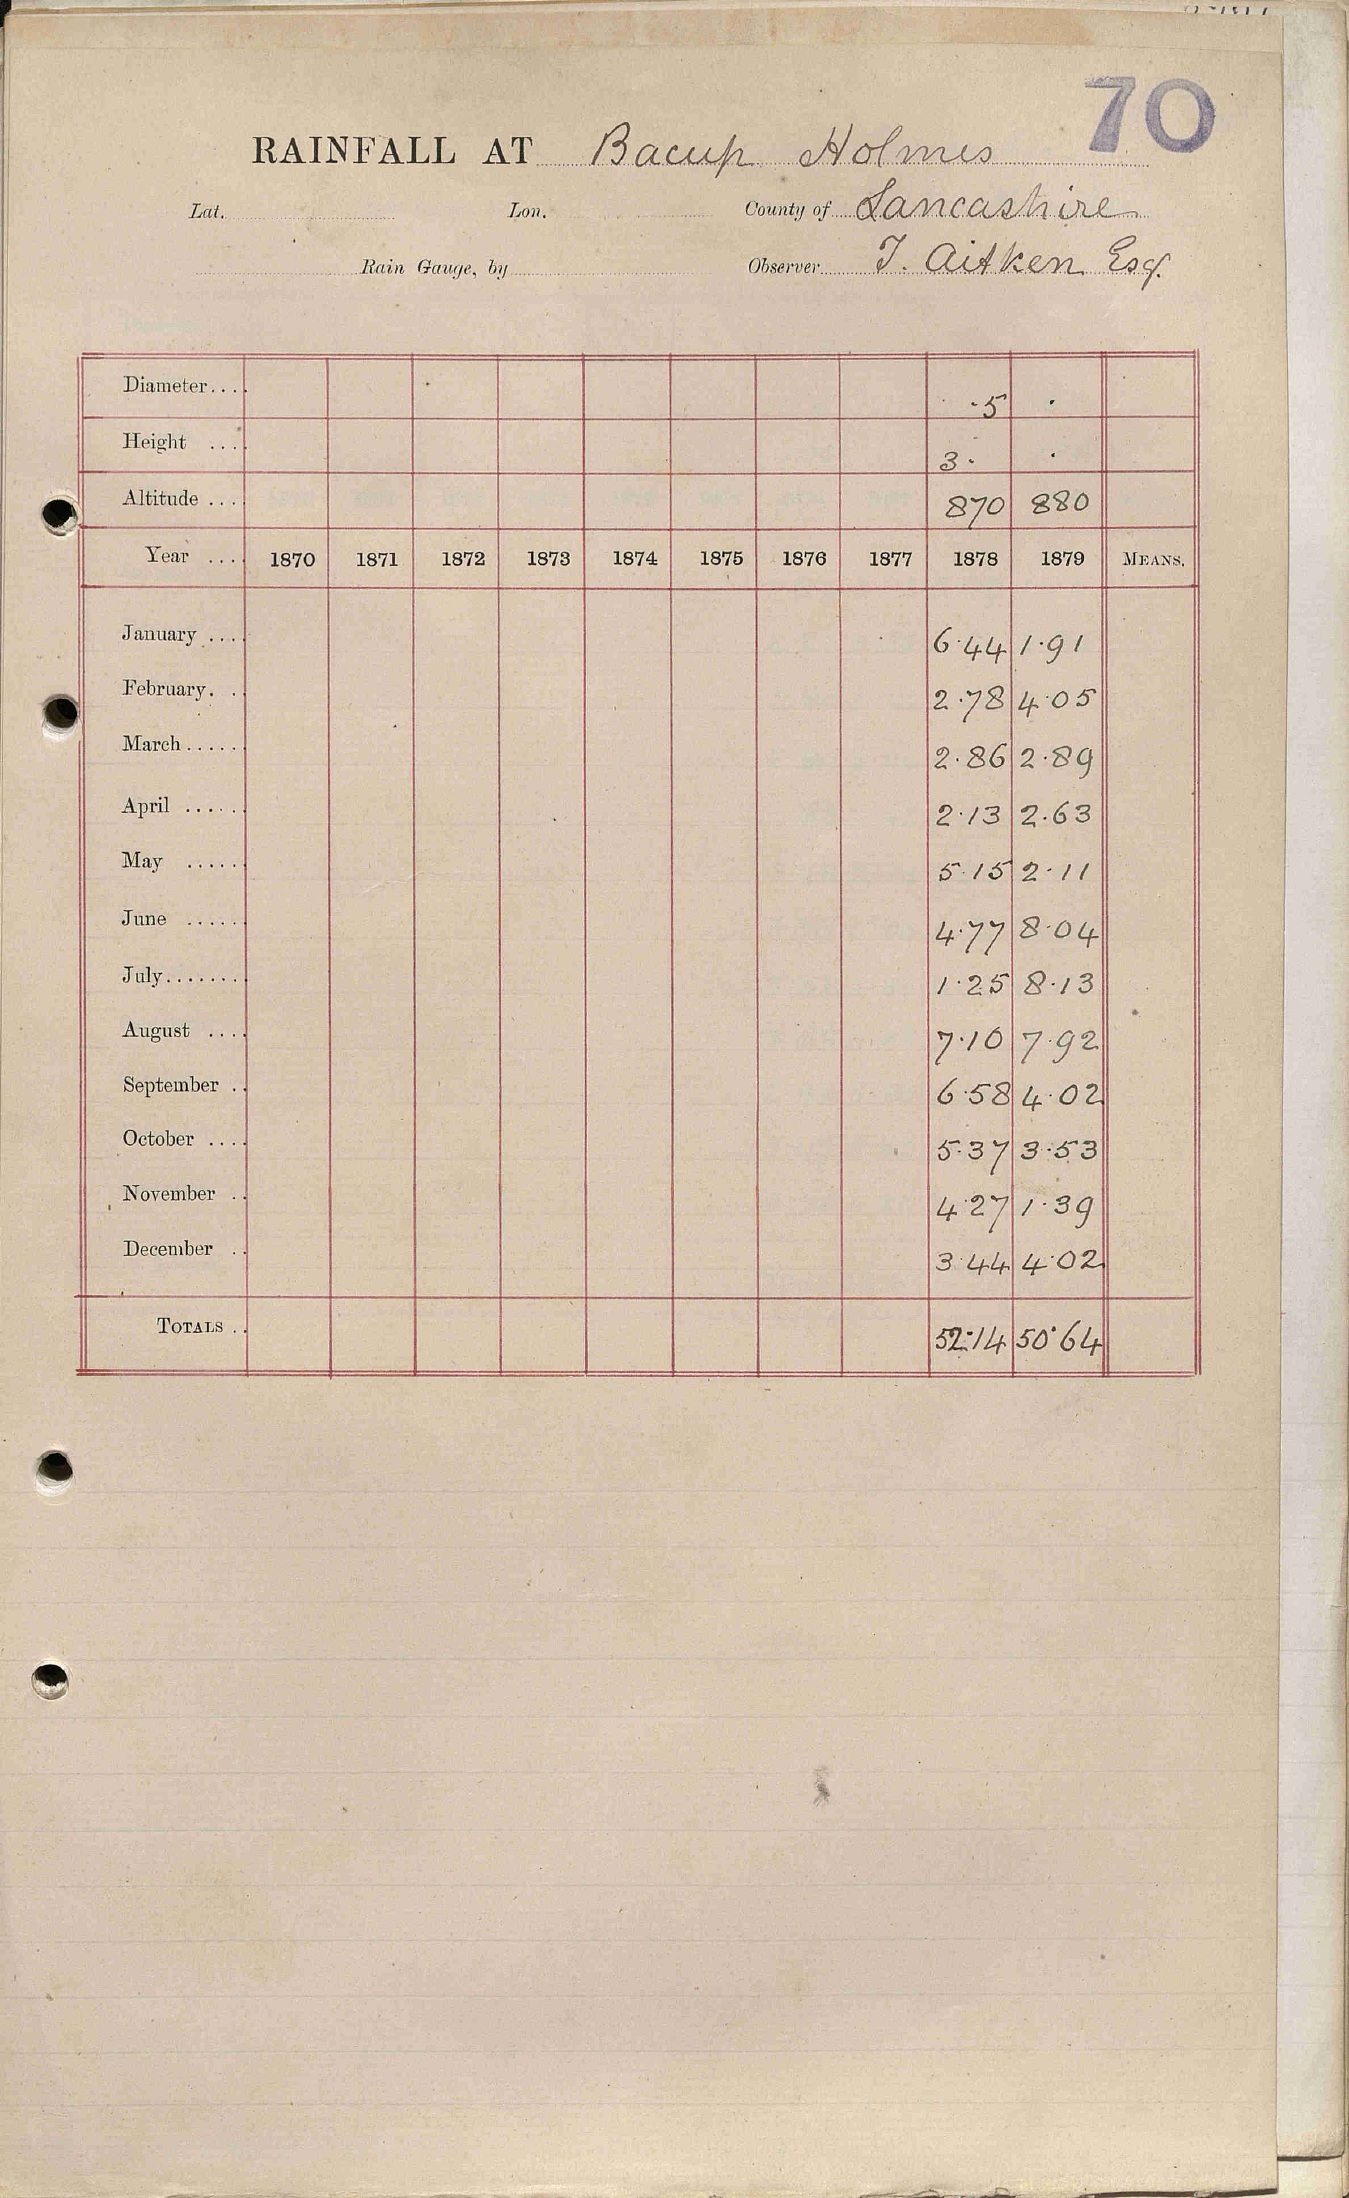 70
RAINFALL AT Bacup Holmes
Lat. Lon. County of Lancashire
Rain Gauge, by Observer T. Aitken Esq.
Diameter.... ·5 ·
Height .... 3· ·
Altitude .... 870 880
Year .... 1870 1871 1872 1873 1874 1875 1876 1877 1878 1879 MEANS.
January .... 6·44 1·91
February. .. 2·78 4·05
March...... 2·86 2·89
April ...... 2·13 2·63
May ...... 5·15 2·11
June ...... 4·77 8·04
July........ 1·25 8·13
August .... 7·10 7·92
September .. 6·58 4·02
October .... 5·37 3·53
November .. 4·27 1·39
December .. 3·44 4·02
TOTALS .. 52·14 50·64